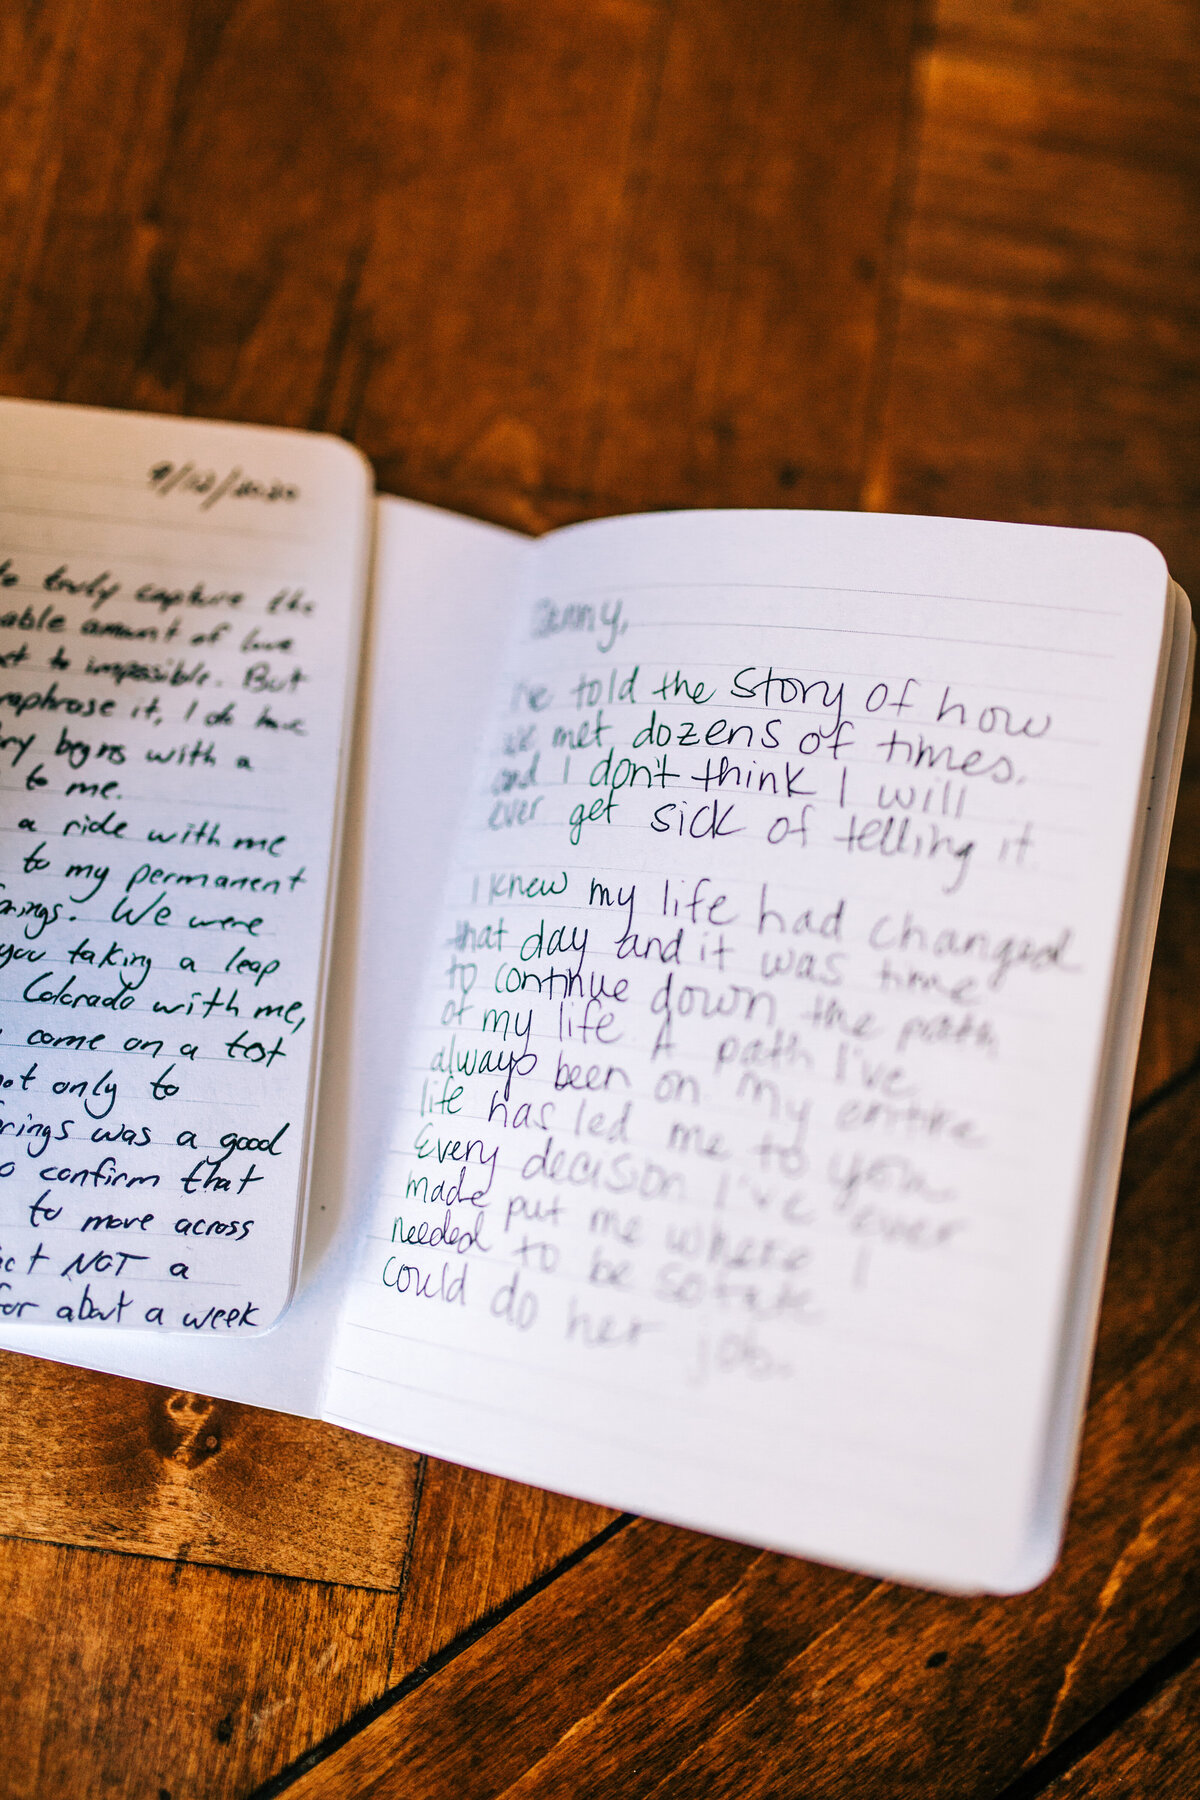 9/12/2020
to truly capture the
able amount of love
to impossible. But
raphrase it, I do have
begins with a
to me.
a ride with me
to my permanent
We were
you taking a leap
Colorado with me,
come on a test
not only to
rings was a good
to confirm that
to move across
NOT a
for about a week
told the story of how
we met dozens of times.
and I don't think I will
ever get sick of telling it.
I knew my life had changed
that day and it was time
to continue down the path
of my life. A path I've
always been on. My entire
life has led me to you.
Every decision I've ever
made put me where I
needed to be so
could do her job.